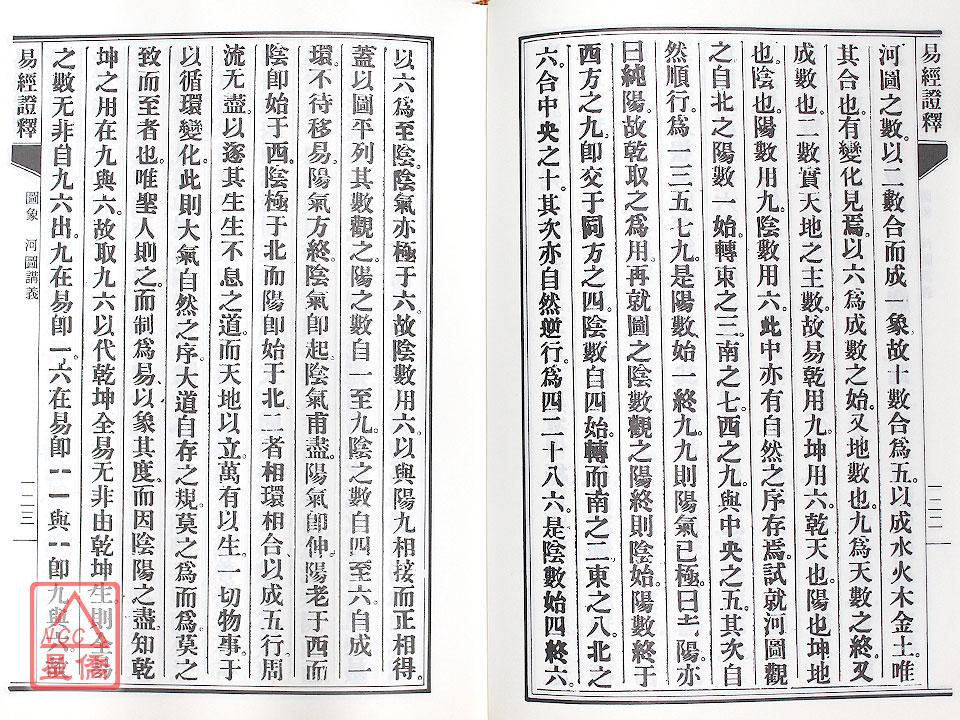 易經證釋
一二二
河圖之數以二數合而成一象。故十數合為五。以成水火木金土。唯
其合也。有變化見焉。以六為成數之始。又地數也。九為天數之終。又
成數也。二數實天地之主數。故易乾用九。坤用六。乾天也。陽也。坤地
也。陰也。陽數用九。陰數用六。此中亦有自然之序存焉。試就河圖觀
之。自北之陽數一始。轉東之三。南之七。西之九。與中央之五。其次自
然順行。為一三五七九。是陽數始一終九。九則陽氣已極。曰老陽。亦
曰純陽。故乾取之為用。再就圖之陰數觀之。陽終則陰始。陽數終于
西方之九。即交于同方之四。陰數自四始。轉而南之二。東之八。北之
六。合中央之十。其次亦自然逆行。為四二十八六。是陰數始四終六。
以六為至陰。陰氣亦極于六。故陰數用六。以與陽九相接。而正相得。
蓋以圖平列其數觀之。陽之數自一至九。陰之數自四至六。自成一
環。不待移易。陽氣方終。陰氣即起。陰氣甫盡。陽氣即伸。陽老于西而
陰即始于西。陰極于北而陽即始于北。二者相環相合。以成五行。周
流无盡。以逐其生生不息之道。而天地以立。萬有以生。一切物事。于
以循環變化。此則大氣自然之序。大道自存之規。莫之為而為。莫之
致而至者也。唯聖人則之。而制為易。以象其度。而因陰陽之盡。知乾
坤之用在九與六。故取九六以代乾坤。全易无非由乾坤生。則全易
之數无非自九六出。九在易即一。六在易即⚋。一與⚋即九與六。故
易經證釋
圖象 河圖講義
一二三
NGC